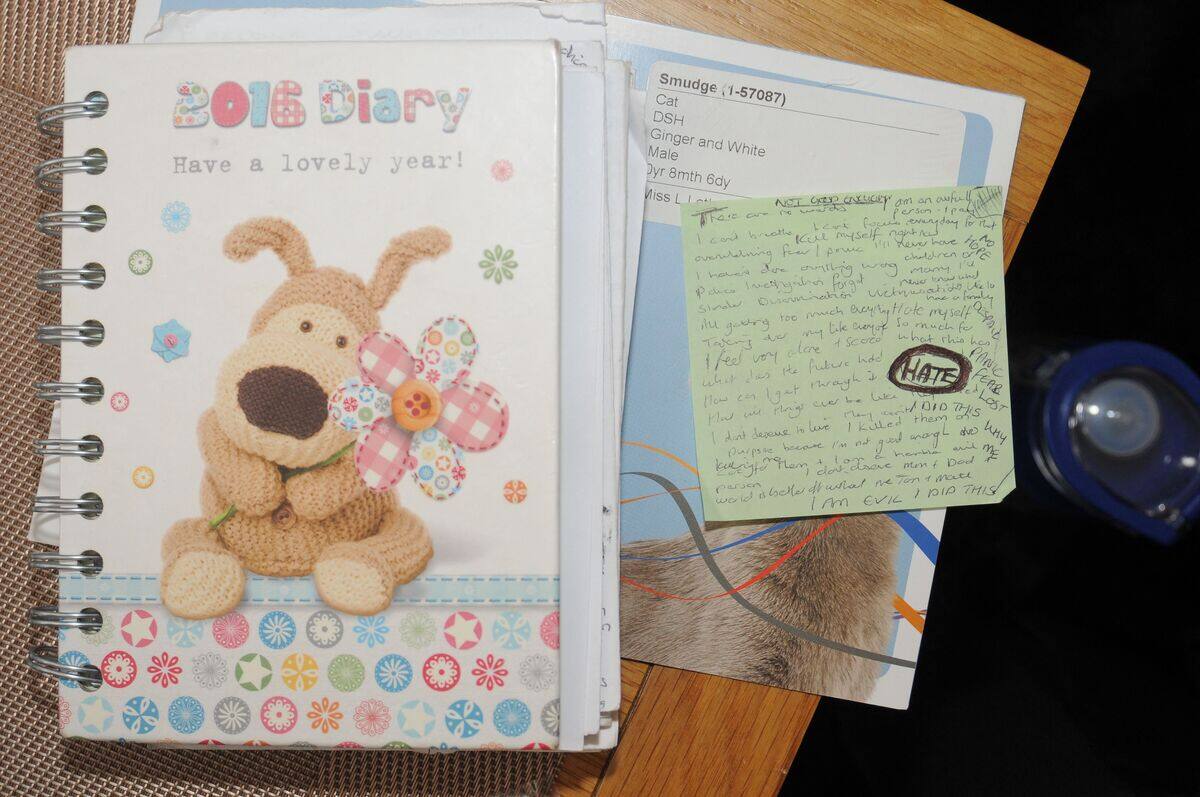 2016 Diary
Have a lovely year!
Smudge (1-57087)
Cat
DSH
Ginger and White
Male
0yr 8mth 6dy
Miss L
NOT GOOD ENOUGH
There are no words I am an awful
person - I pay
I can't breathe I can't focus everyday for that
Kill myself right now
overwhelming fear / panic I'll never have NO
HOPE
I haven't done anything wrong children or
Police Investigation forget marry, I'll
never know what
Slander Discrimination Victimisation like to
have a family
All getting too much everything Hate myself
DESPAIR
Taking over my life everyday so much for
what this has
I feel very alone + scared
PANIC
What does the future hold HATE
FEAR
How can I get through it
LOST
How will things ever be like
I DID THIS
I don't deserve to live I killed them on
purpose because I'm not good enough WHY
ME
to care for them + I am a horrible evil
person I don't deserve Mum + Dad +
world is better off without me Tom + Matt
I AM EVIL I DID THIS